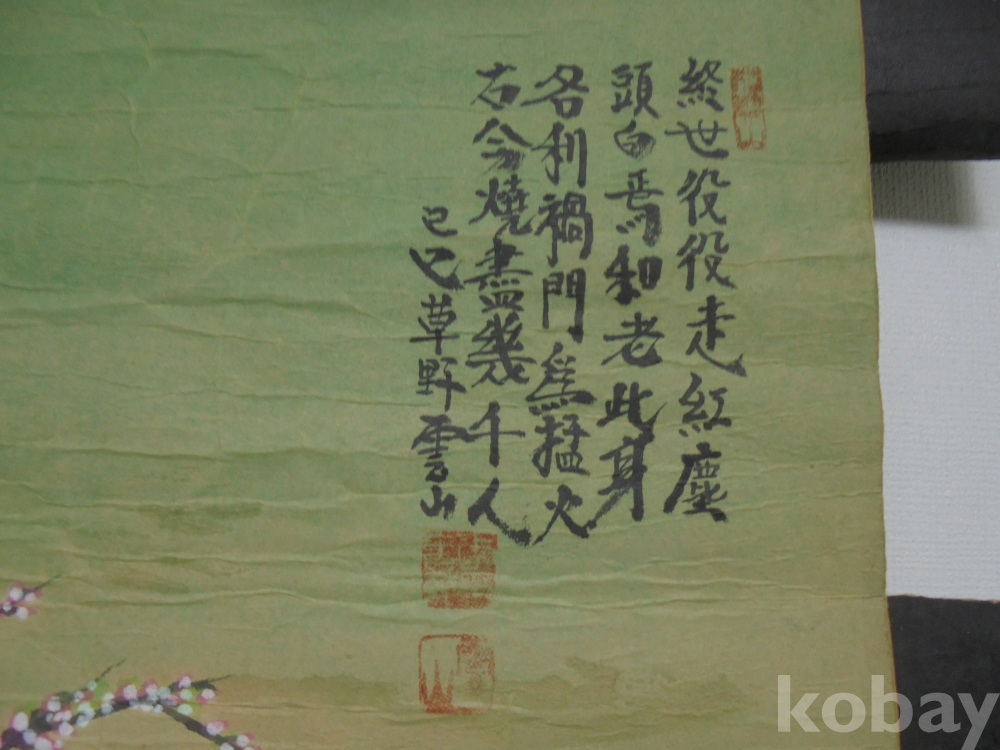 終世役役走紅塵
頭白焉和老此身
各利禍門爲猛火
右今燒盡幾千人
己巳草野雲山
kobay